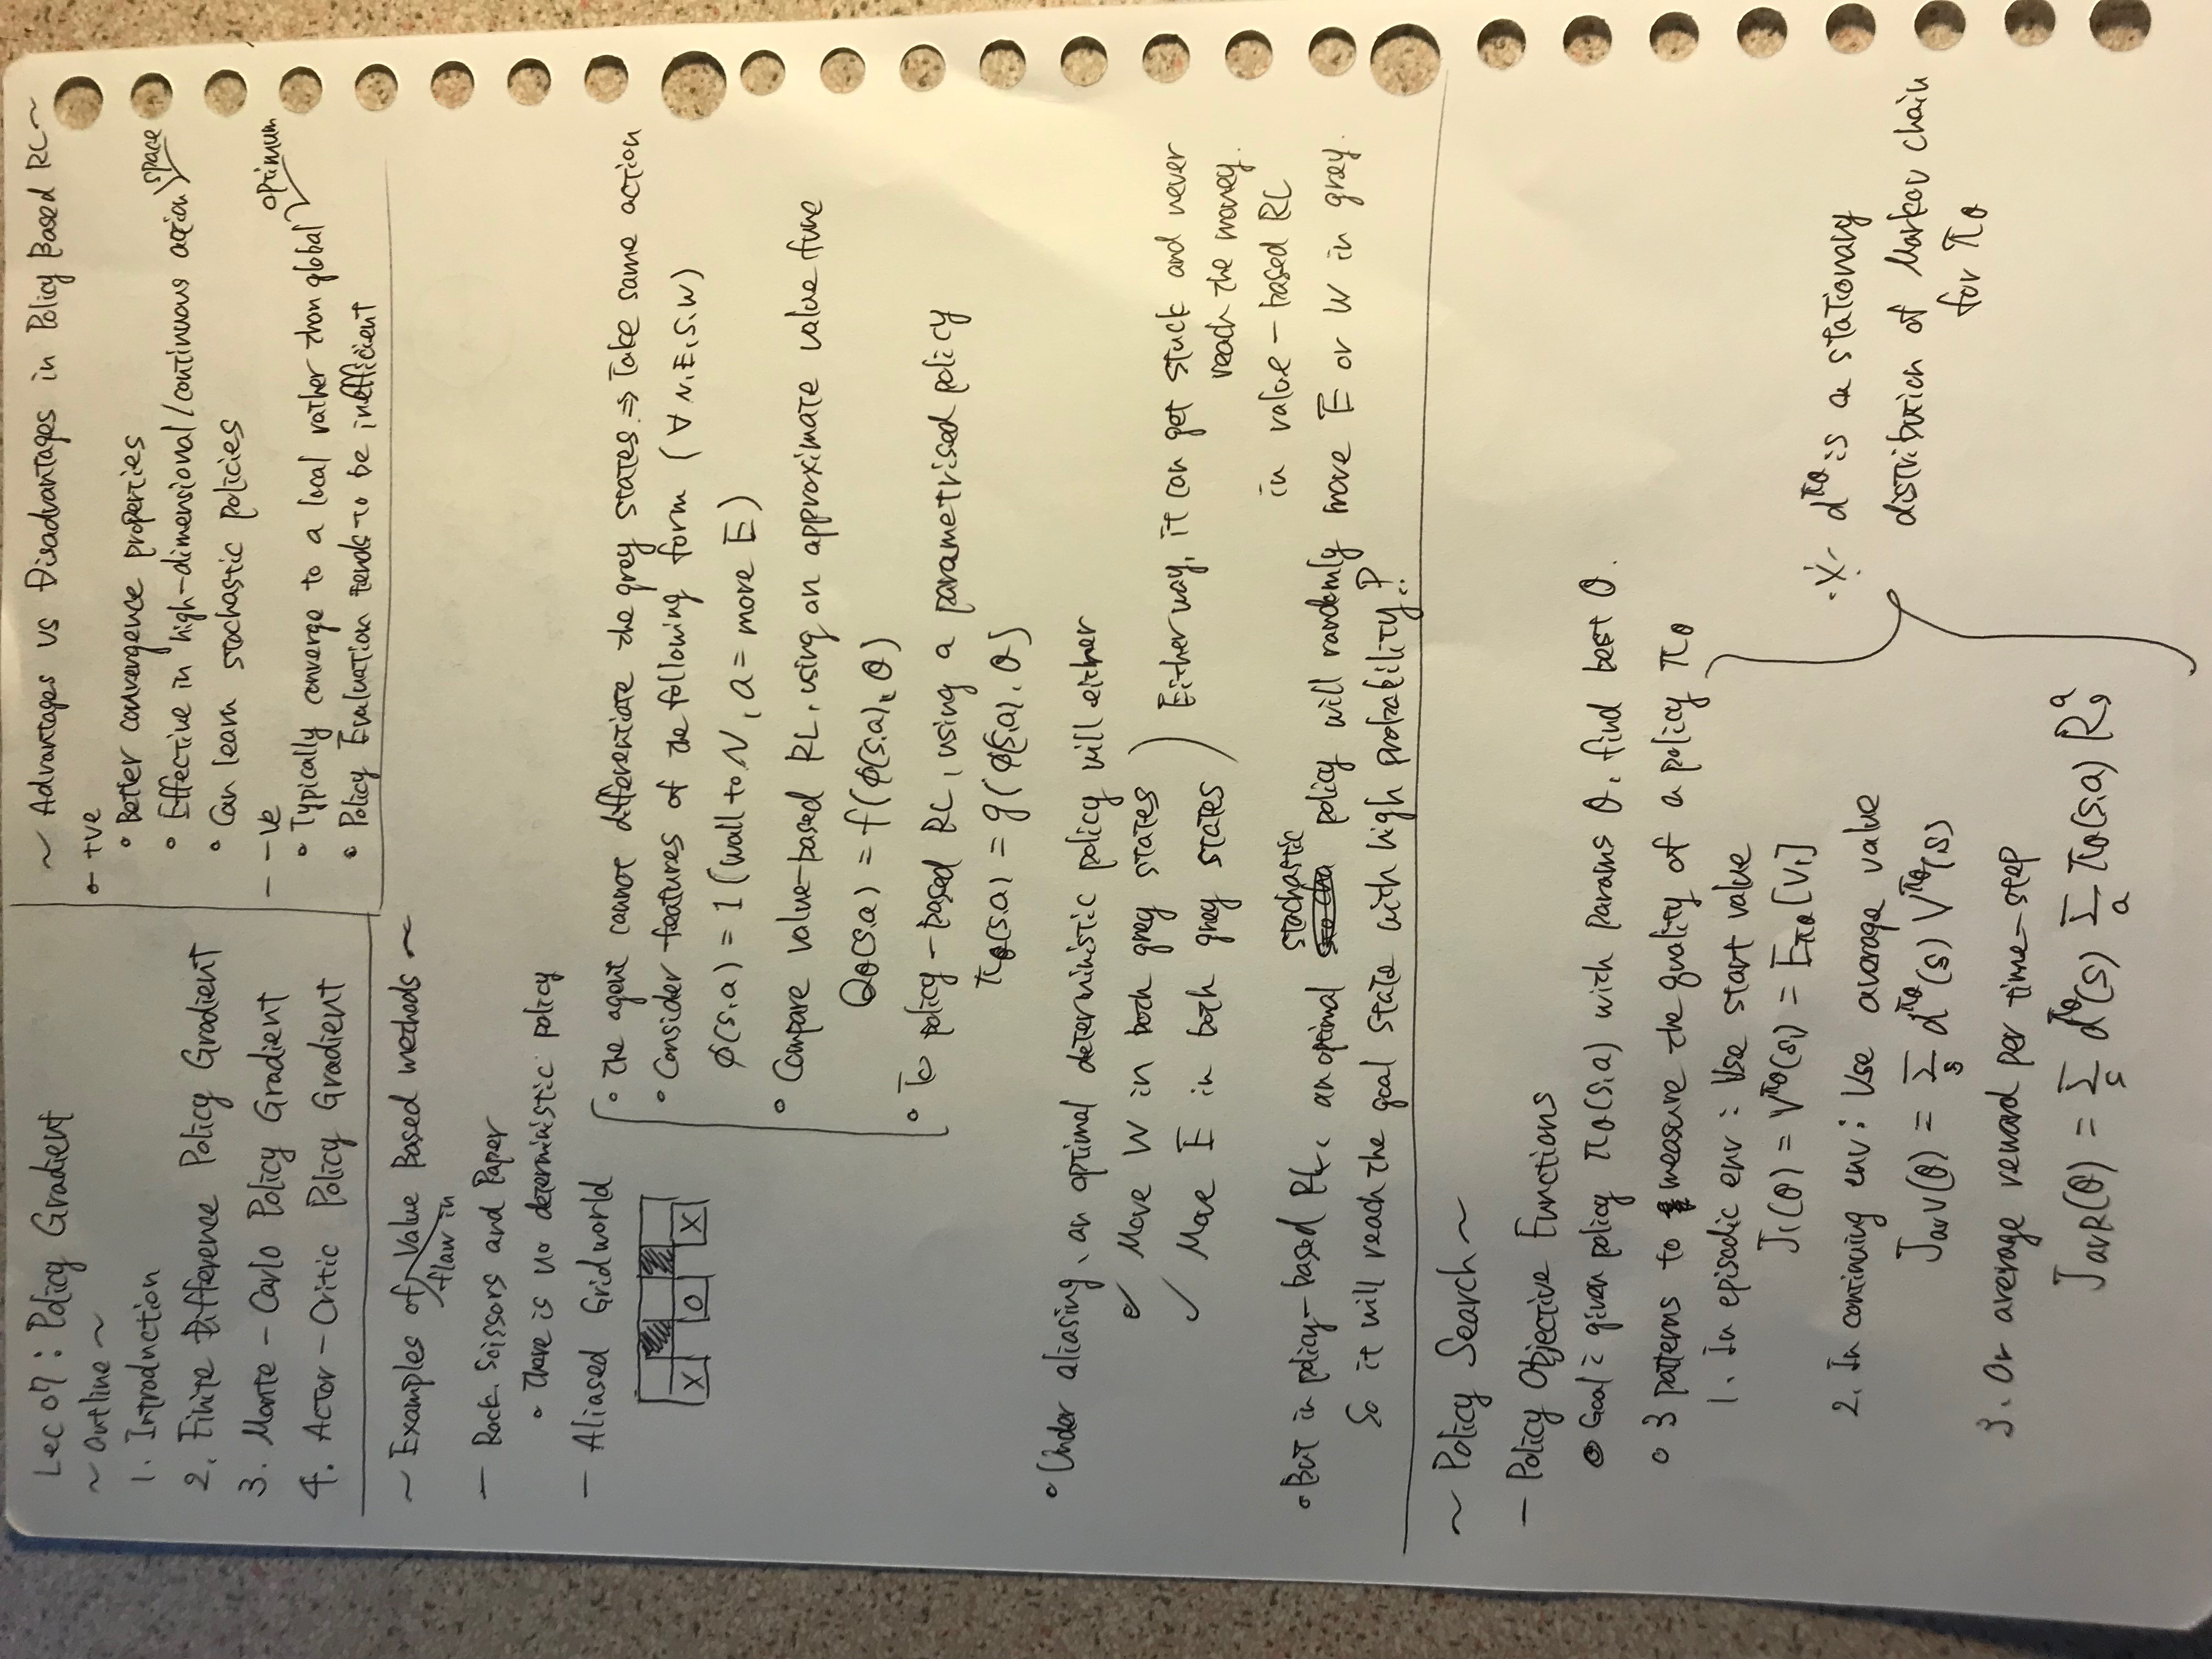 Lec 07 : Policy Gradient
~ Outline ~
1. Introduction
2. Finite Difference Policy Gradient
3. Monte-Carlo Policy Gradient
4. Actor-Critic Policy Gradient
~ Advantages vs Disadvantages in Policy Based RL ~
- +ve
• Better convergence properties
• Effective in high-dimensional/continuous action space
• Can learn stochastic policies
- -ve
• Typically converge to a local rather than global optimum
• Policy Evaluation tends to be inefficient
~ Examples of flaw in Value Based methods ~
- Rock. Scissors and Paper
• There is no deterministic policy
- Aliased Gridworld
X O X
• The agent cannot differentiate the grey states. ⇒ Take same action
• Consider features of the following form (∀ N, E, S, W)
φ(s,a) = 1 (wall to N, a = move E)
• Compare value-based RL, using an approximate value func
Qθ(s,a) = f(φ(s,a), θ)
• To policy-based RL, using a parametrised policy
πθ(s,a) = g(φ(s,a), θ)
• Under aliasing, an optimal deterministic policy will either
✓ Move W in both grey states
✓ Move E in both grey states
Either way, it can get stuck and never
reach the money.
in value-based RL
• But in policy-based RL, an optimal stochastic policy will randomly move E or W in grey.
So it will reach the goal state with high probability!
~ Policy Search ~
- Policy Objective Functions
• Goal : given policy πθ(s,a) with params θ, find best θ.
• 3 patterns to measure the quality of a policy πθ
1. In episodic env : Use start value
J₁(θ) = V^πθ(s₁) = E_πθ[V₁]
2. In continuing env : Use average value
JavV(θ) = Σ_s d^πθ(s) V^πθ(s)
3. Or average reward per time-step
JavR(θ) = Σ_s d^πθ(s) Σ_a πθ(s,a) R_s^a
※ d^πθ is a stationary
distribution of Markov chain
for πθ